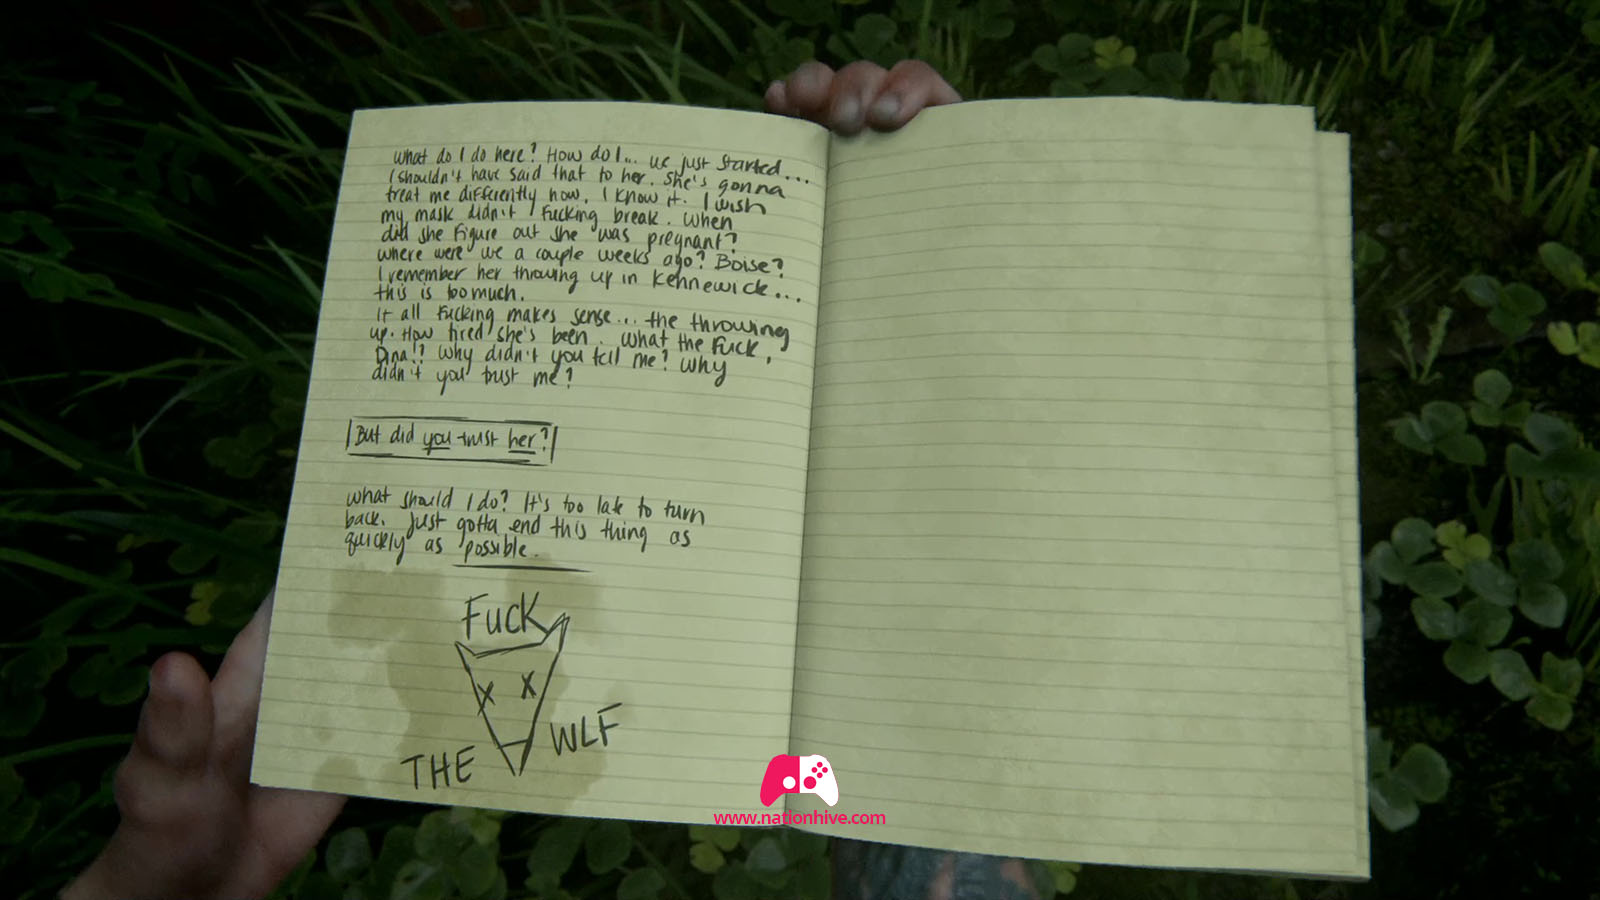 What do I do here? How do I... we just started...
I shouldn't have said that to her. She's gonna
treat me differently now. I know it. I wish
my mask didn't fucking break. When
did she figure out she was pregnant?
where were we a couple weeks ago? Boise?
I remember her throwing up in Kennewick...
this is too much.
It all fucking makes sense... the throwing
up. How tired she's been. What the fuck,
Dina!? Why didn't you tell me? Why
didn't you trust me?
But did you trust her?
What should I do? It's too late to turn
back. Just gotta end this thing as
quickly as possible.
Fuck
THE WLF
www.nationhive.com